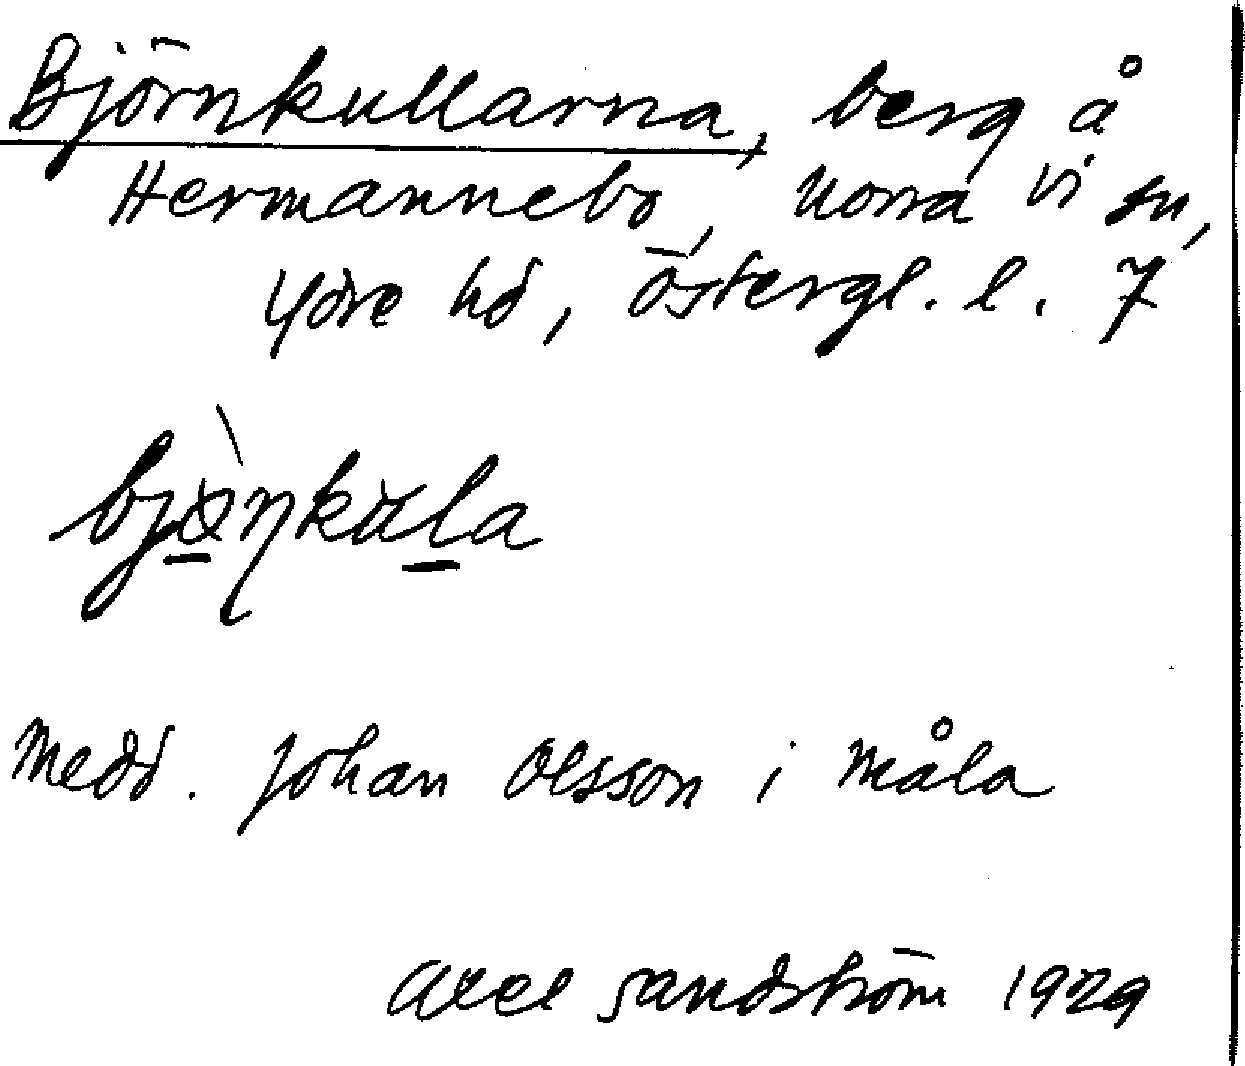 Björnkullarna, berg å
Hermannebo, Norra Vi sn,
Ydre hd, Östergl. l. 7
Medd. Johan Olsson i Måla
Axel Sandström 1929